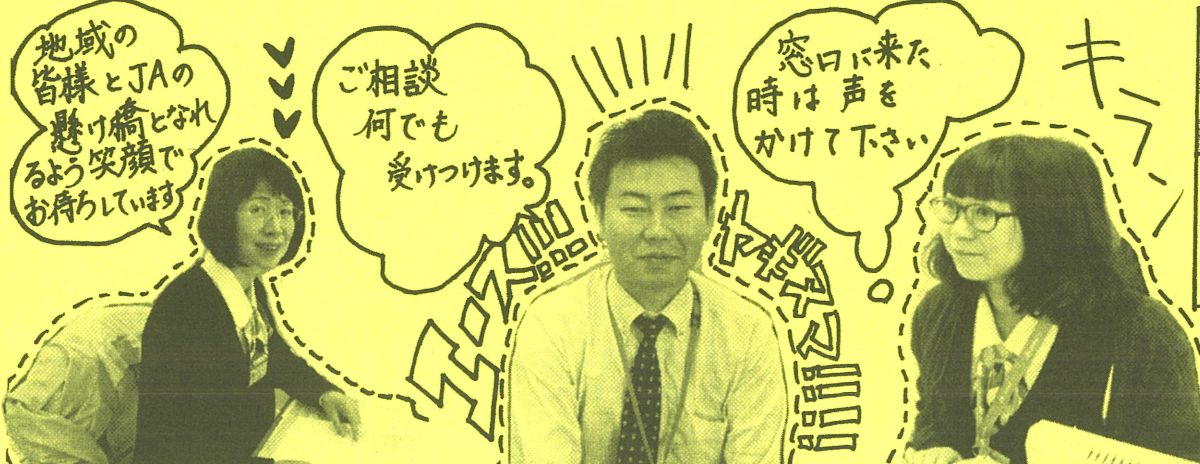 地域の
皆様とJAの
懸け橋となれ
るよう笑顔で
お待ちしています
ご相談
何でも
受けつけます。
エース!!!
ヤギヌマ!!!!
窓口に来た
時は声を
かけて下さい
キラン